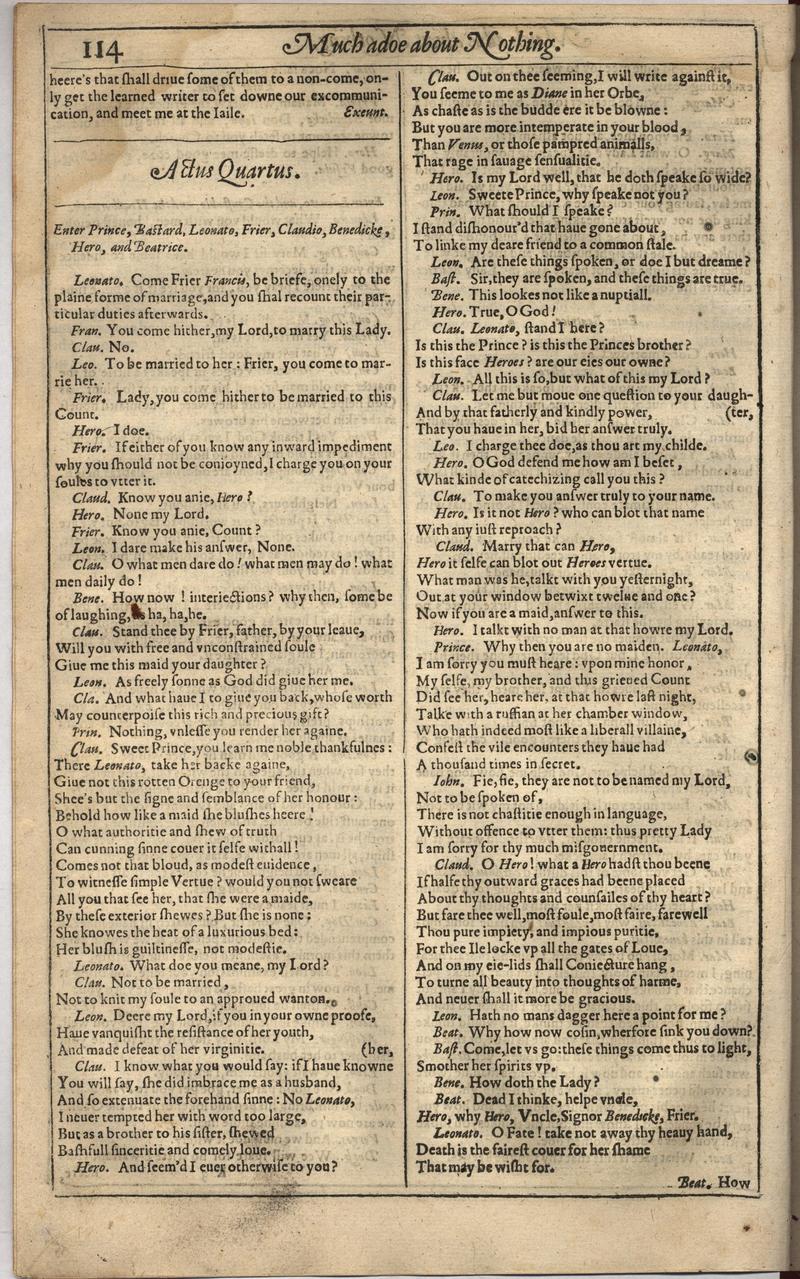 114
Much adoe about Nothing.
heere's that ſhall driue ſome of them to a non-come, on-
ly get the learned writer to ſet downe our excommuni-
cation, and meet me at the Iaile. Exeunt.
Actus Quartus.
Enter Prince, Baſtard, Leonato, Frier, Claudio, Benedicke,
Hero, and Beatrice.
Leonato. Come Frier Francis, be briefe, onely to the
plaine forme of marriage, and you ſhal recount their par-
ticular duties afterwards.
Fran. You come hither, my Lord, to marry this Lady.
Clau. No.
Leo. To be married to her: Frier, you come to mar-
rie her.
Frier. Lady, you come hither to be married to this
Count.
Hero. I doe.
Frier. If either of you know any inward impediment
why you ſhould not be conioyned, I charge you on your
ſoules to vtter it.
Claud. Know you anie, Hero?
Hero. None my Lord.
Frier. Know you anie, Count?
Leon. I dare make his anſwer, None.
Clau. O what men dare do! what men may do! what
men daily do!
Bene. How now! interiections? why then, ſome be
of laughing, ha, ha, he.
Clau. Stand thee by Frier, father, by your leaue,
Will you with free and vnconſtrained ſoule
Giue me this maid your daughter?
Leon. As freely ſonne as God did giue her me.
Cla. And what haue I to giue you back, whoſe worth
May counterpoiſe this rich and precious gift?
Prin. Nothing, vnleſſe you render her againe.
Clau. Sweet Prince, you learn me noble thankfulnes:
There Leonato, take her backe againe,
Giue not this rotten Orenge to your friend,
Shee's but the ſigne and ſemblance of her honour:
Behold how like a maid ſhe bluſhes heere!
O what authoritie and ſhew of truth
Can cunning ſinne couer it ſelfe withall!
Comes not that bloud, as modeſt euidence,
To witneſſe ſimple Vertue? would you not ſweare
All you that ſee her, that ſhe were a maide,
By theſe exterior ſhewes? But ſhe is none:
She knowes the heat of a luxurious bed:
Her bluſh is guiltineſſe, not modeſtie.
Leonato. What doe you meane, my Lord?
Clau. Not to be married,
Not to knit my ſoule to an approued wanton.
Leon. Deere my Lord, if you in your owne proofe,
Haue vanquiſht the reſiſtance of her youth,
And made defeat of her virginitie. (her,
Clau. I know what you would ſay: if I haue knowne
You will ſay, ſhe did imbrace me as a husband,
And ſo extenuate the forehand ſinne: No Leonato,
I neuer tempted her with word too large,
But as a brother to his ſiſter, ſhewed
Baſhfull ſinceritie and comely loue.
Hero. And ſeem'd I euer otherwiſe to you?
Clau. Out on thee ſeeming, I will write againſt it,
You ſeeme to me as Diane in her Orbe,
As chaſte as is the budde ere it be blowne:
But you are more intemperate in your blood,
Than Venus, or thoſe pampred animalls,
That rage in ſauage ſenſualitie.
Hero. Is my Lord well, that he doth ſpeake ſo wide?
Leon. Sweete Prince, why ſpeake not you?
Prin. What ſhould I ſpeake?
I ſtand diſhonour'd that haue gone about,
To linke my deare friend to a common ſtale.
Leon. Are theſe things ſpoken, or doe I but dreame?
Baſt. Sir, they are ſpoken, and theſe things are true.
Bene. This lookes not like a nuptiall.
Hero. True, O God!
Clau. Leonato, ſtand I here?
Is this the Prince? is this the Princes brother?
Is this face Heroes? are our eies our owne?
Leon. All this is ſo, but what of this my Lord?
Clau. Let me but moue one queſtion to your daugh-
And by that fatherly and kindly power, (ter,
That you haue in her, bid her anſwer truly.
Leo. I charge thee doe, as thou art my childe.
Hero. O God defend me how am I beſet,
What kinde of catechizing call you this?
Clau. To make you anſwer truly to your name.
Hero. Is it not Hero? who can blot that name
With any iuſt reproach?
Claud. Marry that can Hero,
Hero it ſelfe can blot out Heroes vertue.
What man was he, talkt with you yeſternight,
Out at your window betwixt twelue and one?
Now if you are a maid, anſwer to this.
Hero. I talkt with no man at that howre my Lord.
Prince. Why then you are no maiden. Leonato,
I am ſorry you muſt heare: vpon mine honor,
My ſelfe, my brother, and this grieued Count
Did ſee her, heare her, at that howre laſt night,
Talke with a ruffian at her chamber window,
Who hath indeed moſt like a liberall villaine,
Confeſt the vile encounters they haue had
A thouſand times in ſecret.
Iohn. Fie, fie, they are not to be named my Lord,
Not to be ſpoken of,
There is not chaſtitie enough in language,
Without offence to vtter them: thus pretty Lady
I am ſorry for thy much miſgouernment.
Claud. O Hero! what a Hero hadſt thou beene
If halfe thy outward graces had beene placed
About thy thoughts and counſailes of thy heart?
But fare thee well, moſt foule, moſt faire, farewell
Thou pure impiety, and impious puritie,
For thee Ile locke vp all the gates of Loue,
And on my eie-lids ſhall Coniecture hang,
To turne all beauty into thoughts of harme,
And neuer ſhall it more be gracious.
Leon. Hath no mans dagger here a point for me?
Beat. Why how now coſin, wherfore ſink you down?
Baſt. Come, let vs go: theſe things come thus to light,
Smother her ſpirits vp.
Bene. How doth the Lady?
Beat. Dead I thinke, helpe vncle,
Hero, why Hero, Vncle, Signor Benedicke, Frier.
Leonato. O Fate! take not away thy heauy hand,
Death is the faireſt couer for her ſhame
That may be wiſht for.
Beat. How